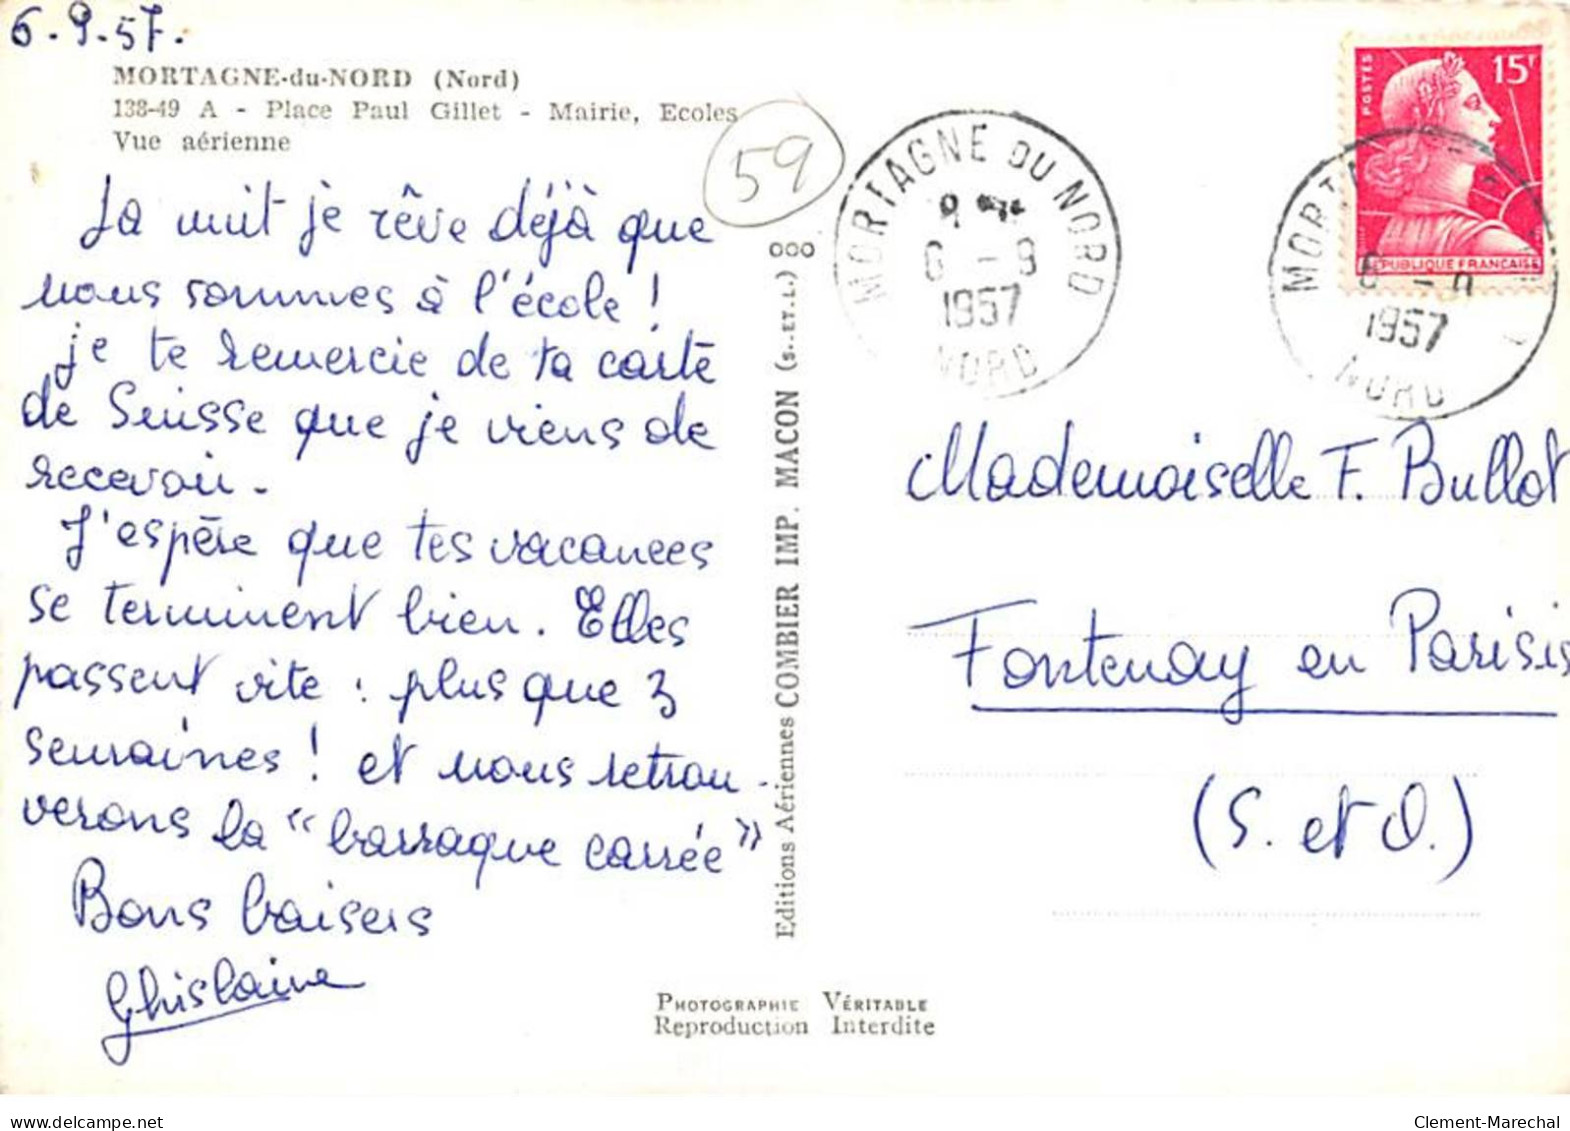 6.9.57.
MORTAGNE-du-NORD (Nord)
138-49 A - Place Paul Gillet - Mairie, Ecoles
Vue aérienne
59
La nuit je rêve déjà que
nous sommes à l'école !
je te remercie de ta carte
de Suisse que je viens de
recevoir.
J'espère que tes vacances
se terminent bien. Elles
passent vite : plus que 3
semaines ! et nous retrou-
verons la "barraque carrée"
Bons baisers
Ghislaine
Editions Aériennes COMBIER IMP. MACON (S.-ET-L.) 000
PHOTOGRAPHIE VÉRITABLE
Reproduction Interdite
MORTAGNE DU NORD
6 - 9
1957
NORD
POSTES
15F
REPUBLIQUE FRANÇAISE
MORTA
1957
NORD
Mademoiselle F. Bullot
Fontenay en Parisis
(S. et O.)
www.delcampe.net
Clement-Marechal